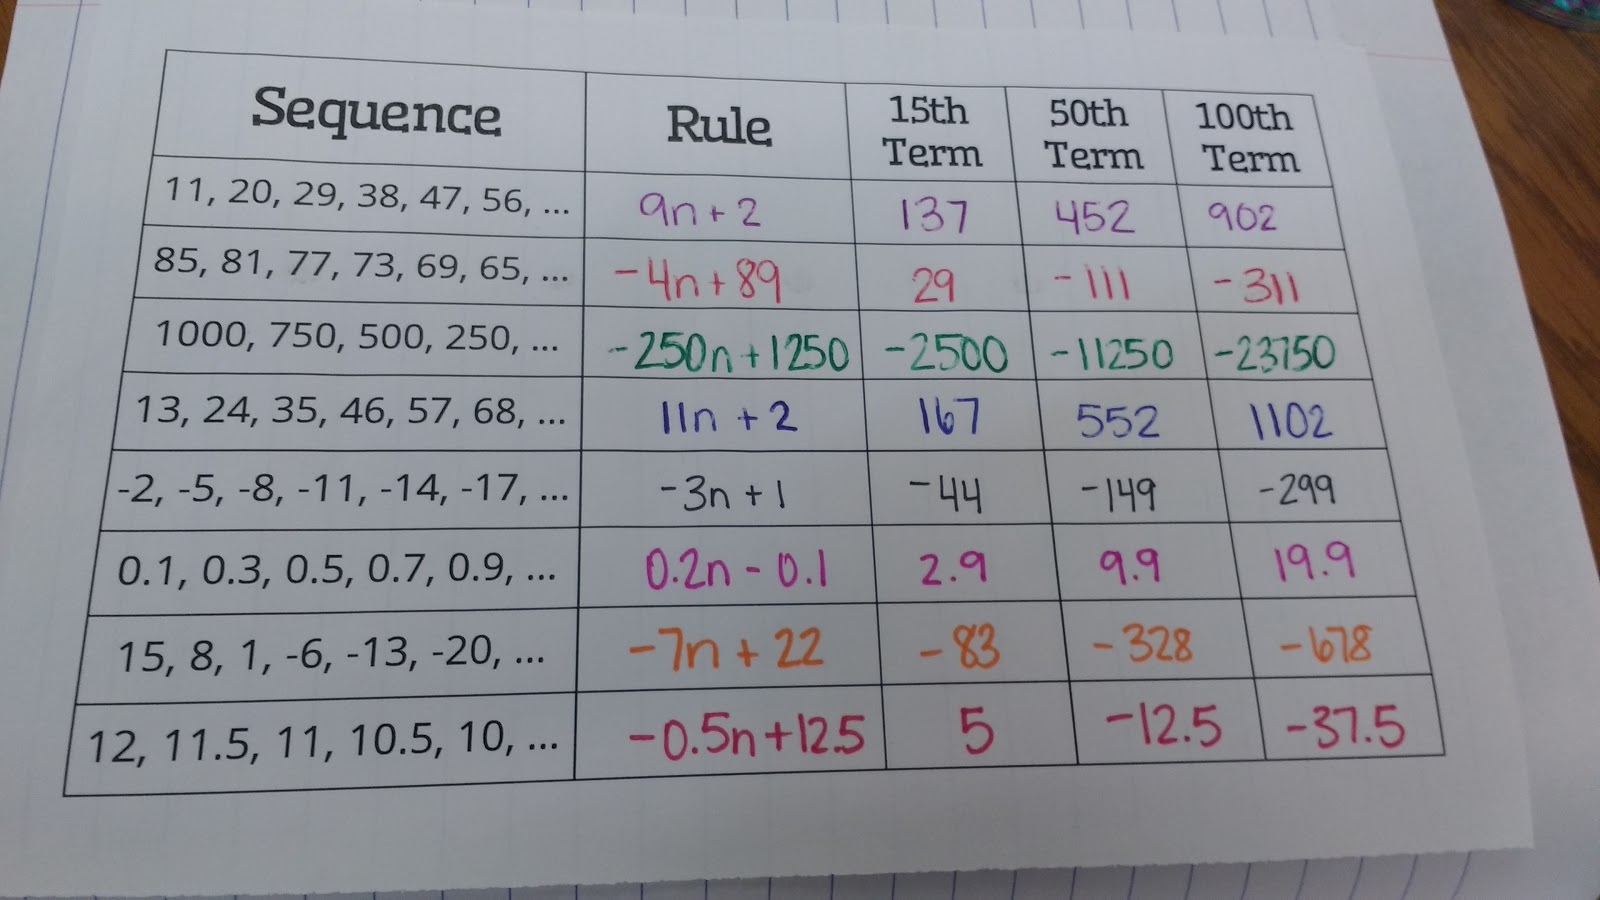 Sequence Rule 15th Term 50th Term 100th Term
11, 20, 29, 38, 47, 56, ... 9n + 2 137 452 902
85, 81, 77, 73, 69, 65, ... -4n + 89 29 -111 -311
1000, 750, 500, 250, ... -250n + 1250 -2500 -11250 -23750
13, 24, 35, 46, 57, 68, ... 11n + 2 167 552 1102
-2, -5, -8, -11, -14, -17, ... -3n + 1 -44 -149 -299
0.1, 0.3, 0.5, 0.7, 0.9, ... 0.2n - 0.1 2.9 9.9 19.9
15, 8, 1, -6, -13, -20, ... -7n + 22 -83 -328 -678
12, 11.5, 11, 10.5, 10, ... -0.5n + 12.5 5 -12.5 -37.5